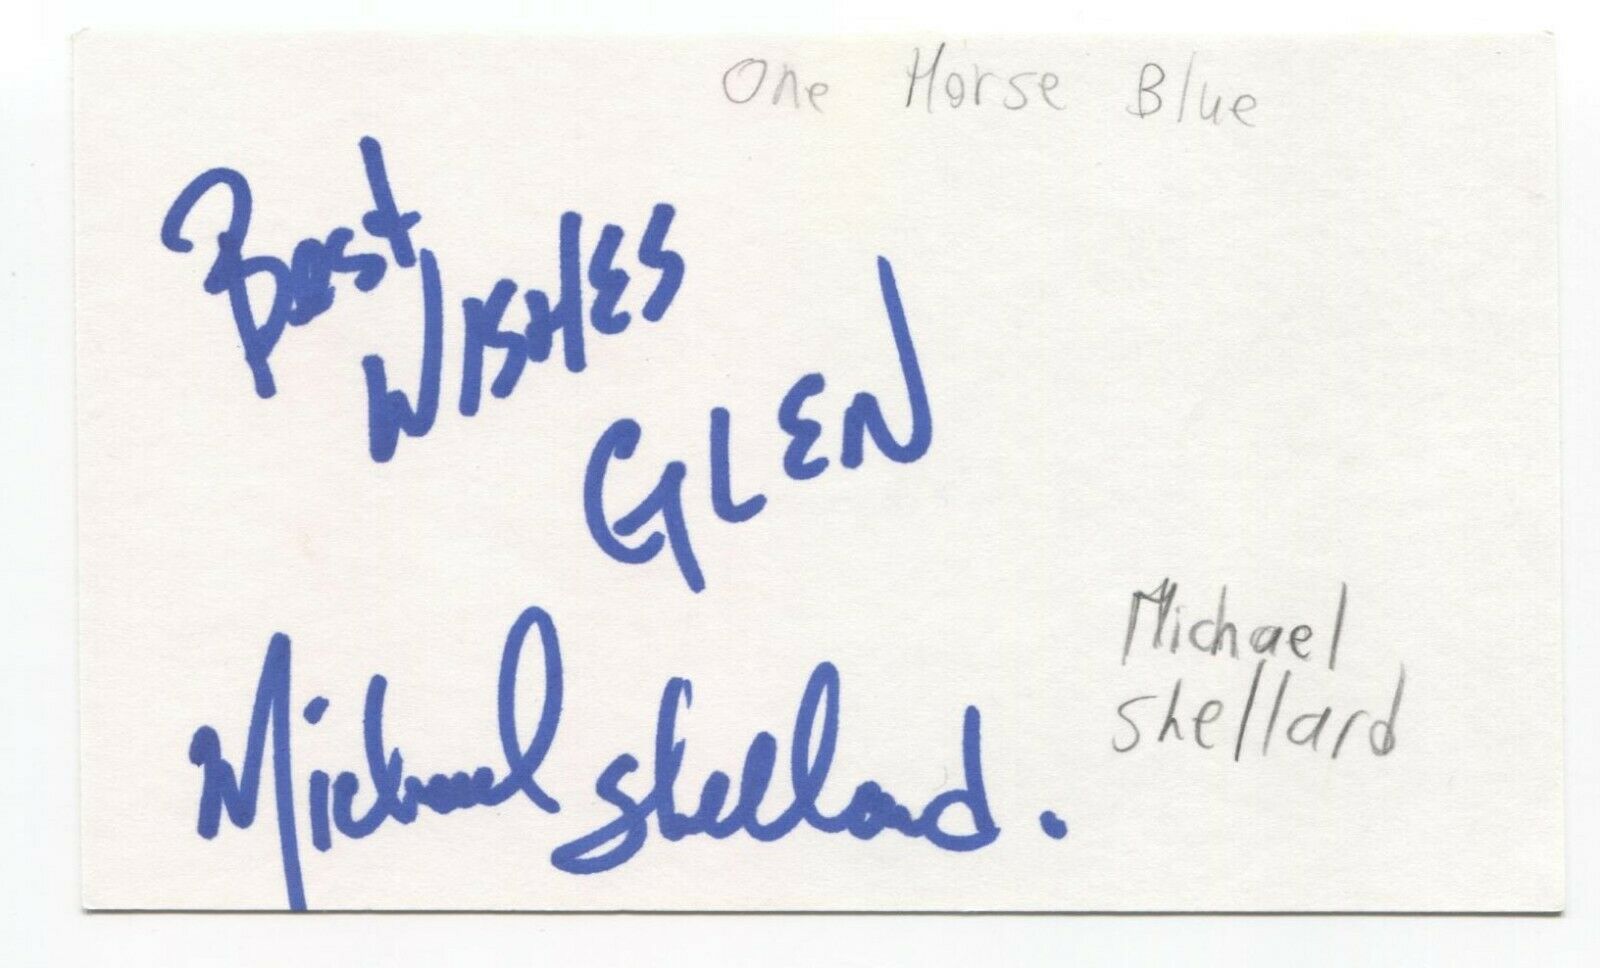 One Horse Blue
Best
WISHES
GLEN
Michael Shellard.
Michael
Shellard